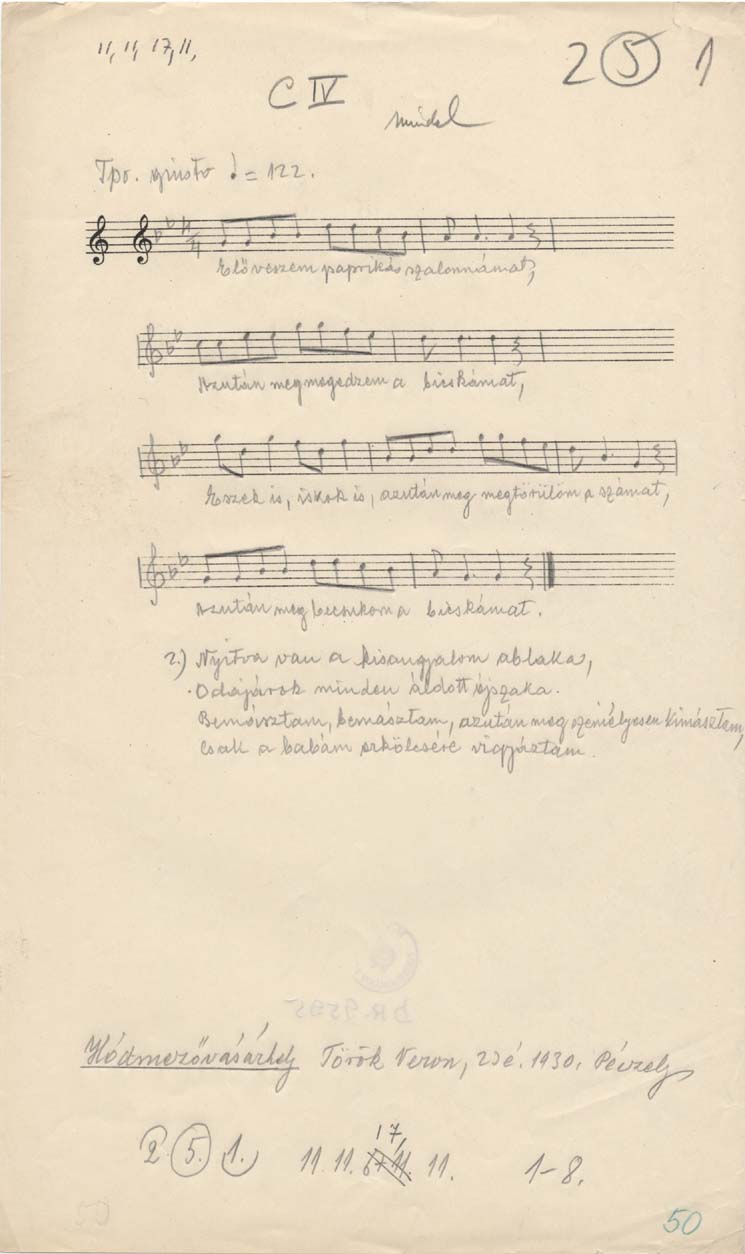 11, 11, 17, 11,
2 5 1
C IV
Tpo. giusto = 122.
4/4
Elő veszem paprikás szalonnámat,
Azután megmegedzem a bicskámat,
Eszek is, iszok is, azután meg megtörülöm a számat,
Azután meg becsukom a bicskámat.
2.) Nyitva van a kisangyalom ablaka,
Odajárok minden áldott éjszaka.
Bemásztam, bemásztam, azután meg személyesen kimásztam,
Csak a babám erkölcsére vigyáztam.
DR. 9595
Hódmezővásárhely Török Veron, 23 é. 1930. Péczely
17,
2 5. 1. 11. 11. 11. 1-8.
50
50